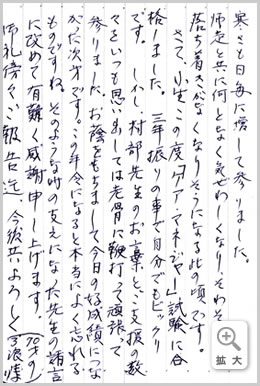 寒さも日毎に増して参りました。
師走と共に何となく気ぜわしくなり、そわそわ
落ち着きがなくなりそうになる此の頃です。
さて、小生この度「ケア・マネジャー」試験に合
格しました。三年振りの事で自分でもビックリ
です。しかし村部先生のお言葉とご支援の数
々をいつも思い出しては老骨に鞭打って頑張って
参りました。お蔭をもちまして今日の好成績につな
がった次第です。この年令になると本当によく忘れる
ものですね。そのような時の支えになった先生の諸言
に改めて有難く感謝申し上げます。
御礼傍々ご報告迄。今後共よろしく
拡大